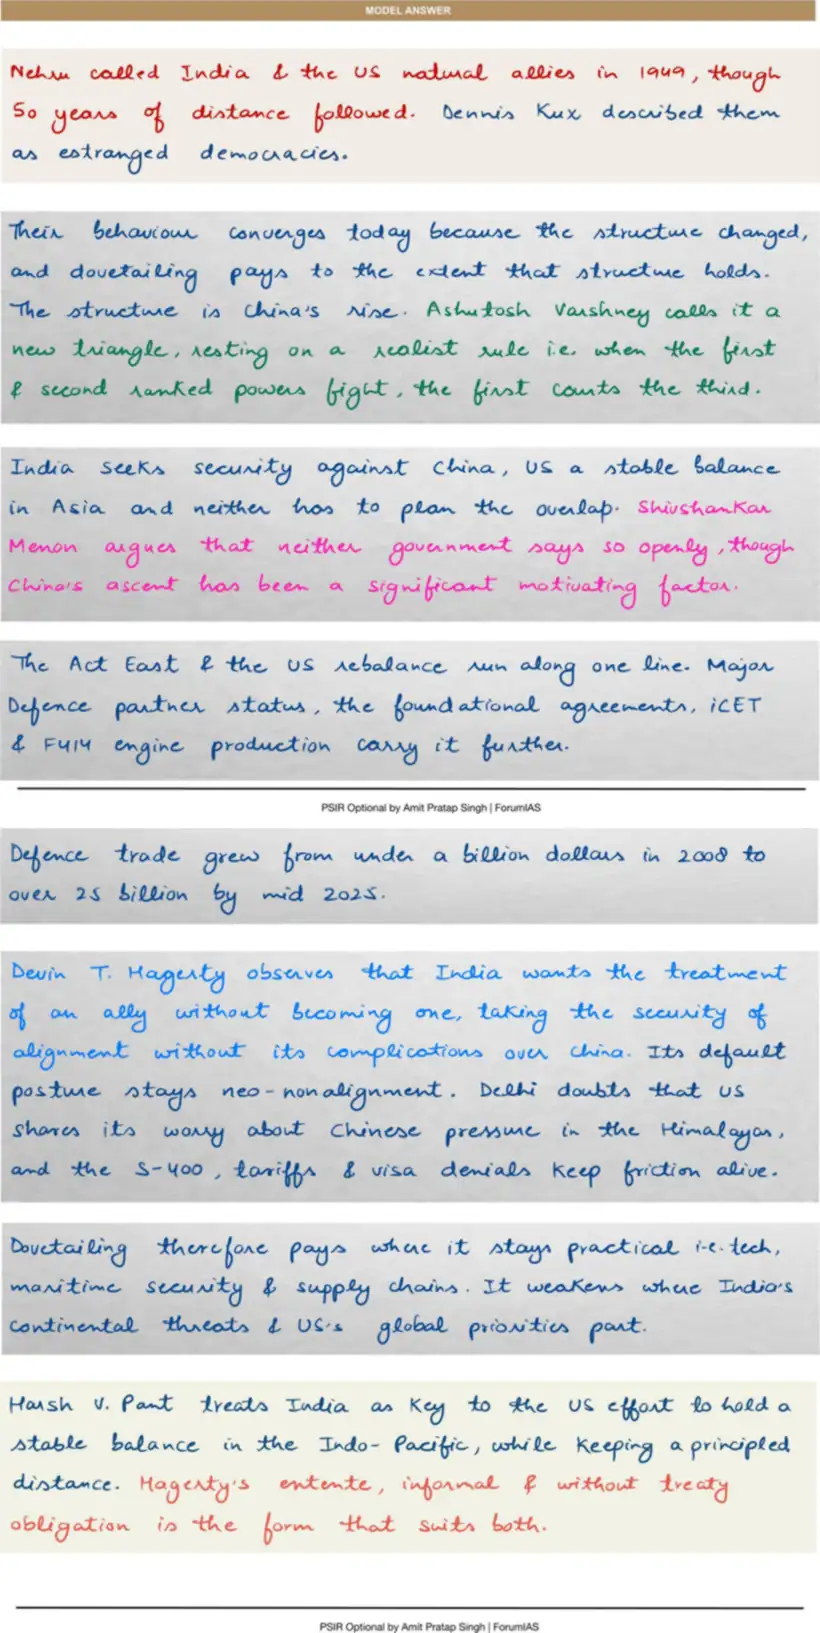 MODEL ANSWER
Nehru called India & the US natural allies in 1949, though
50 years of distance followed. Dennis Kux described them
as estranged democracies.
Their behaviour converges today because the structure changed,
and dovetailing pays to the extent that structure holds.
The structure is China's rise. Ashutosh Varshney calls it a
new triangle, resting on a realist rule i.e. when the first
& second ranked powers fight, the first courts the third.
India seeks security against China, US a stable balance
in Asia and neither has to plan the overlap. Shivshankar
Menon argues that neither government says so openly, though
China's ascent has been a significant motivating factor.
The Act East & the US rebalance run along one line. Major
Defence partner status, the foundational agreements, iCET
& F414 engine production carry it further.
PSIR Optional by Amit Pratap Singh | ForumIAS
Defence trade grew from under a billion dollars in 2008 to
over 25 billion by mid 2025.
Devin T. Hagerty observes that India wants the treatment
of an ally without becoming one, taking the security of
alignment without its complications over China. Its default
posture stays neo-nonalignment. Delhi doubts that US
shares its worry about Chinese pressure in the Himalayas,
and the S-400, tariffs & visa denials keep friction alive.
Dovetailing therefore pays where it stays practical i.e. tech,
maritime security & supply chains. It weakens where India's
continental threats & US's global priorities part.
Harsh V. Pant treats India as key to the US effort to hold a
stable balance in the Indo-Pacific, while keeping a principled
distance. Hagerty's entente, informal & without treaty
obligation is the form that suits both.
PSIR Optional by Amit Pratap Singh | ForumIAS